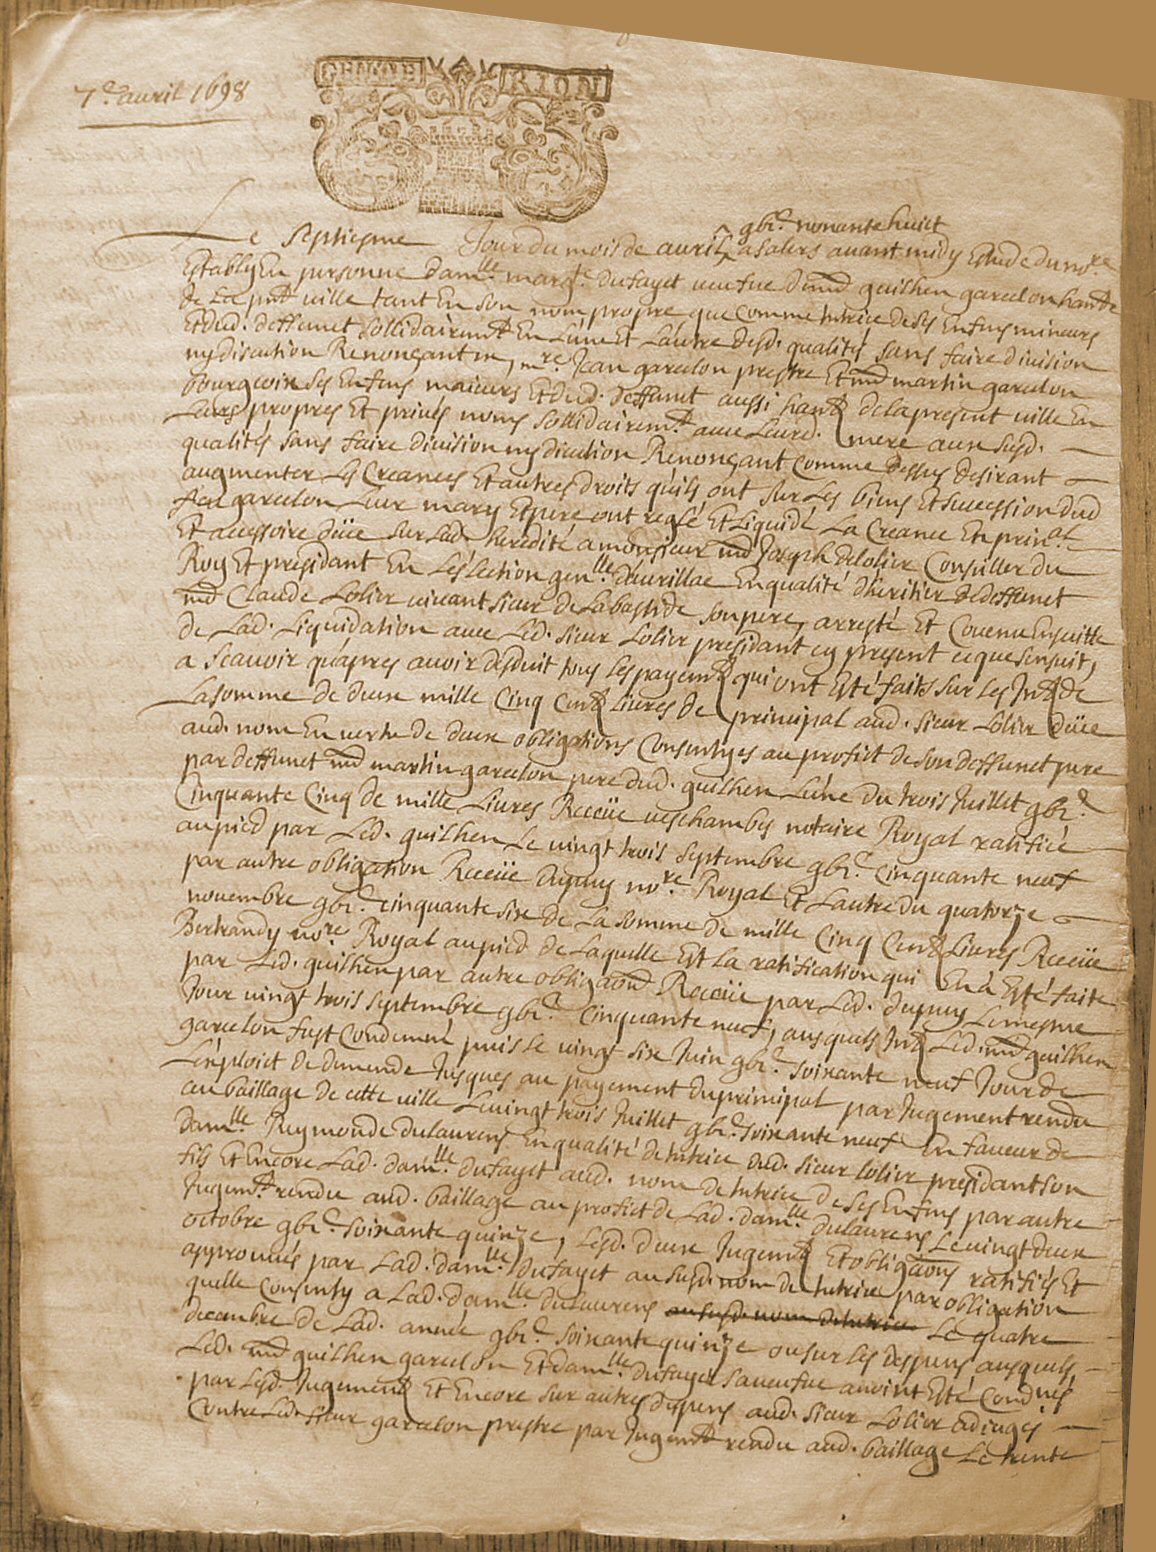 7.e avril 1698
GEN DE RION
gbc. nonante huict
Le Septiesme Jour du mois de avril a salers avant midy Estude du nore.
Estably En personne damlle margte. Dufayet veufve d'md guilhen garcelon hante
de La pnt ville tant En son nom propre que Comme tutrice de ses Enfens mineurs
Et dud. deffunct Sollidairemt En L'une Et L'autre desd. qualités sans faire division
ny discution Renonçant , mre. Jean garcelon prestre Et md martin garcelon
bourgeoix ses Enfens maieurs Et dud. deffunt aussi hants de la present ville En
Leurs propres Et privés noms sollidairemt. avec Leurd. mere aux susd.
qualités sans faire division ny dicution Renonçant Comme dessus desirant
augmenter Les Creances Et autres droits quils ont sur Les biens Et succession dud
feu garcelon Leur mary Et pere ont reglé Et Liquidé La Creance En prinal.
Et accessoire düe sur Lad. heredité a monsieur md Joseph de lolier Conseiller du
Roy Et president En Leslection genlle. d'aurillac En qualité d'heritier de deffunct
md Claude Lolier vivant sieur de Labastide son pere, arresté Et Convenu Ensuitte
de Lad. Liquidation avec Led. sieur Lolier president cy present ce que sensuit,
a Scavoir qu'apres avoir desduit tous les payemts qui ont Esté faits sur Les Intts de
La somme de deux mille Cinq Cents Livres de principal aud. sieur Lolier düe
aud. nom En vertu de deux obligations Consenties au profict de son deffunct pere
par deffunct md martin garcelon pere dud. guilhen L'une du trois Juillet gbc.
Cinquante Cinq de mille Livres Receüe veschambes notaire Royal ratifiée
au pied par Led. guilhen Le vingt trois septembre gbc. cinquante neuf
par autre obligation Receüe Dupuy nore. Royal Et Lautre du quatorze
novembre gbc. cinquante six de La somme de mille Cinq Cents Livres Receüe
Bertrandy nore. Royal au pied de Laquelle Est La ratification qui En a Esté faite
par Led. guilhen par autre obligaon Receüe par Led. dupuy Le mesme
Jour vingt trois septembre gbc. Cinquante neuf, ausquels Intts Led. md guilhen
garcelon fust Condemné puis Le vingt six Juin gbc. soixante neuf Jour de
L'exploict de demende Jusques au payement du principal par Jugement rendu
au baillage de cette ville Le vingt trois Juillet gbc. soixante neuf En faveur de
damlle Reymonde dulaurens En qualité de tutrice dud. sieur lolier president son
fils Et Encore Lad. damlle. dufayet aud. nom de tutrice de ses Enfens par autre
Jugemt rendu aud. baillage au profict de Lad. damlle. dulaurens Le vingt deux
octobre gbc. soixante quinze, Lesd. deux Jugemts Et obligaons ratifiés Et
approuvés par Lad. damlle dufayet au susd. nom de tutrice par obligation
quelle Consenty a Lad. damlle. dulaurens au susd. nom de tutrice Le quatre
decembre de Lad. année gbc. soixante quinze ou sur les Despens ausquels
Led. md guilhen garcelon Et damlle. dufayet sa veufve avoint Esté Condnés
par Lesd. Jugements Et Encore sur autres despens aud. sieur Lolier adiugés
Contre Led. sieur garcelon prestre par Jugemt rendu aud. baillage Le trente